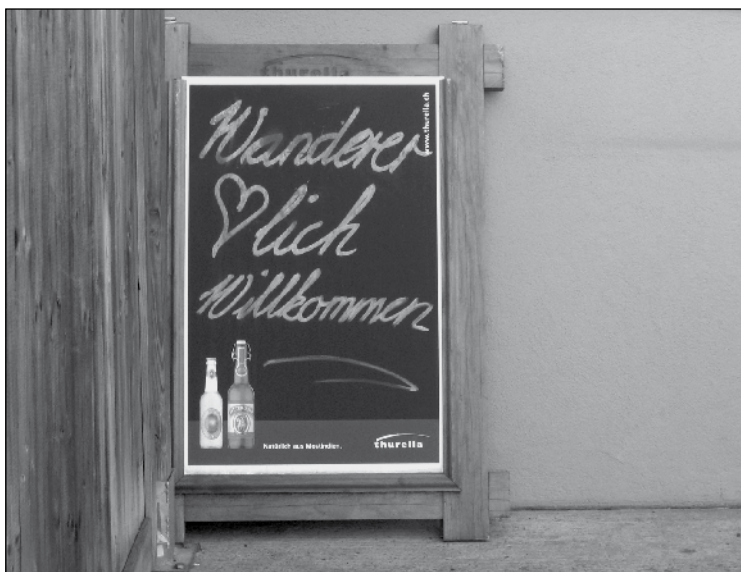 thurella
www.thurella.ch
Wanderer
♡lich
Willkommen
Natürlich aus Mostindien.
thurella